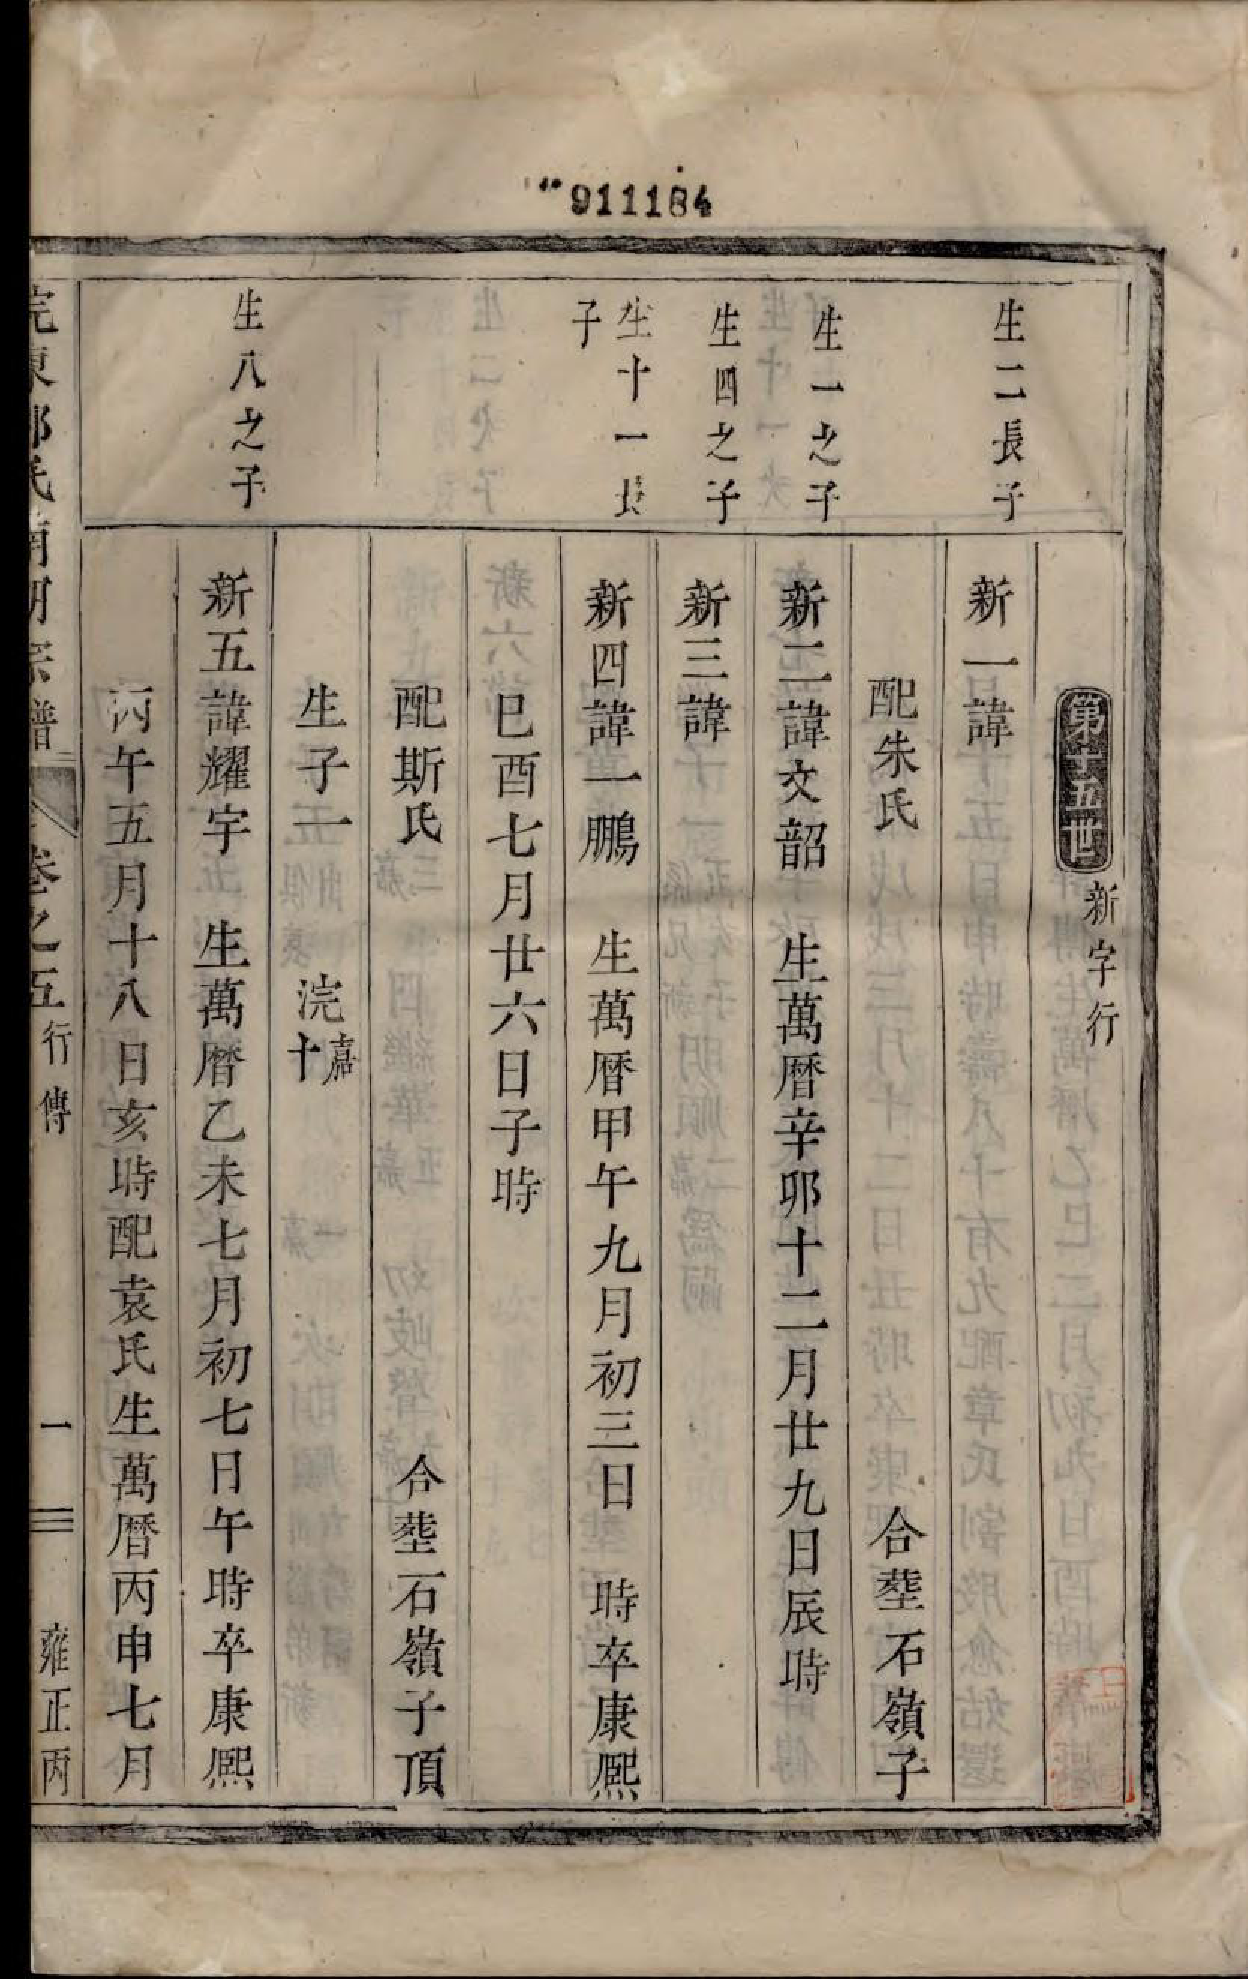 911184
第十五世 新字行
生二長子
新一諱
配朱氏 合塟石嶺子
生一之子
新二諱文韶 生萬曆辛卯十二月廿九日辰時
生四之子
新三諱
生十一長
子
新四諱一鵬 生萬曆甲午九月初三日 時卒康熙
巳酉七月廿六日子時
配斯氏 合塟石嶺子頂
生子一 浣嘉十
生八之子
新五諱耀宇 生萬曆乙未七月初七日午時卒康熙
丙午五月十八日亥時配袁氏生萬曆丙申七月
東 氏 宗譜 卷之五 行傳 一 雍正丙